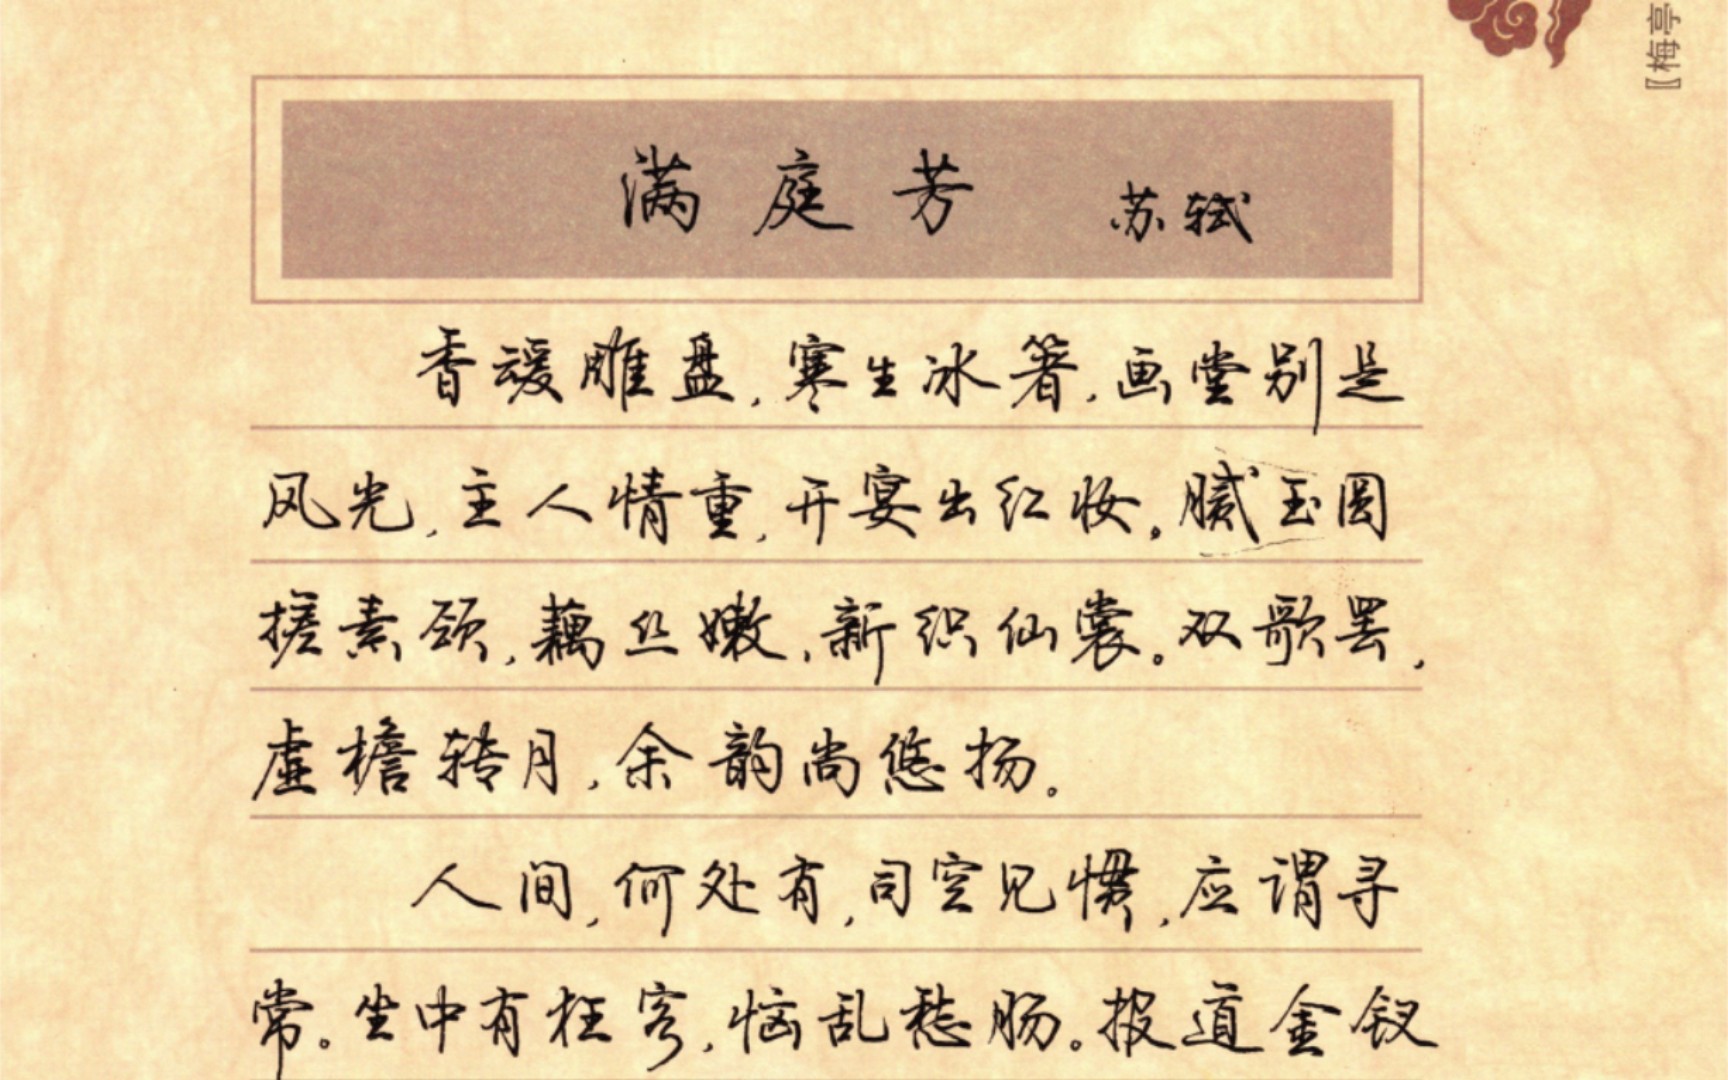 满庭芳 苏轼
香叆雕盘,寒生冰箸,画堂别是
风光,主人情重,开宴出红妆。腻玉圆
搓素颈,藕丝嫩,新织仙裳。双歌罢,
虚檐转月,余韵尚悠扬。
人间,何处有,司空见惯,应谓寻
常。坐中有狂客,恼乱愁肠。报道金钗
〖梅亭